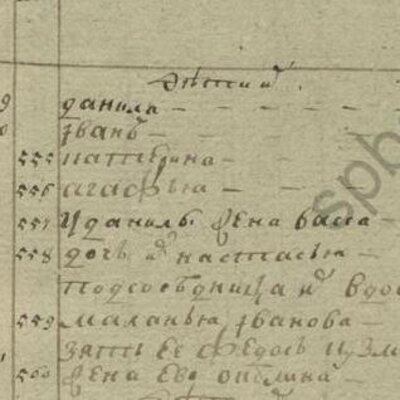 дѣти ихъ
9 данила —
иванъ —
555 катерина —
556 агафья —
557 У данилы жена васса —
558 дочь их настасья —
подсоседница их вдо
559 маланья иванова —
зять ее федосъ кузм
560 жена ево
spb